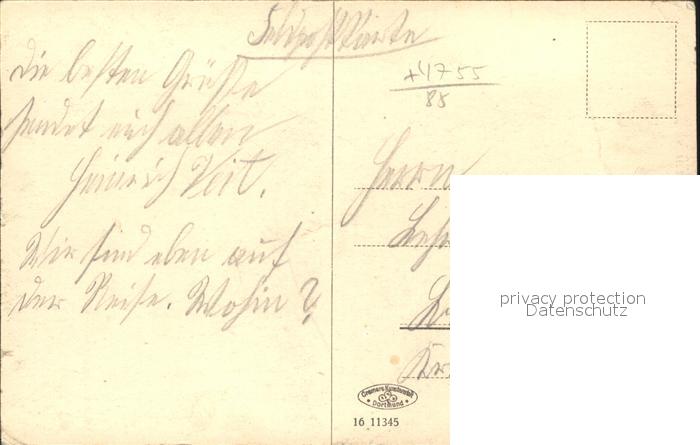 Feldpostkarte
Die besten Grüße
sendet euch allen
Heinrich Veit.
Wir sind eben auf
der Reise. Wohin?
+4755
88
Herrn
Cramers Kunstanstalt
Dortmund
16 11345
privacy protection
Datenschutz